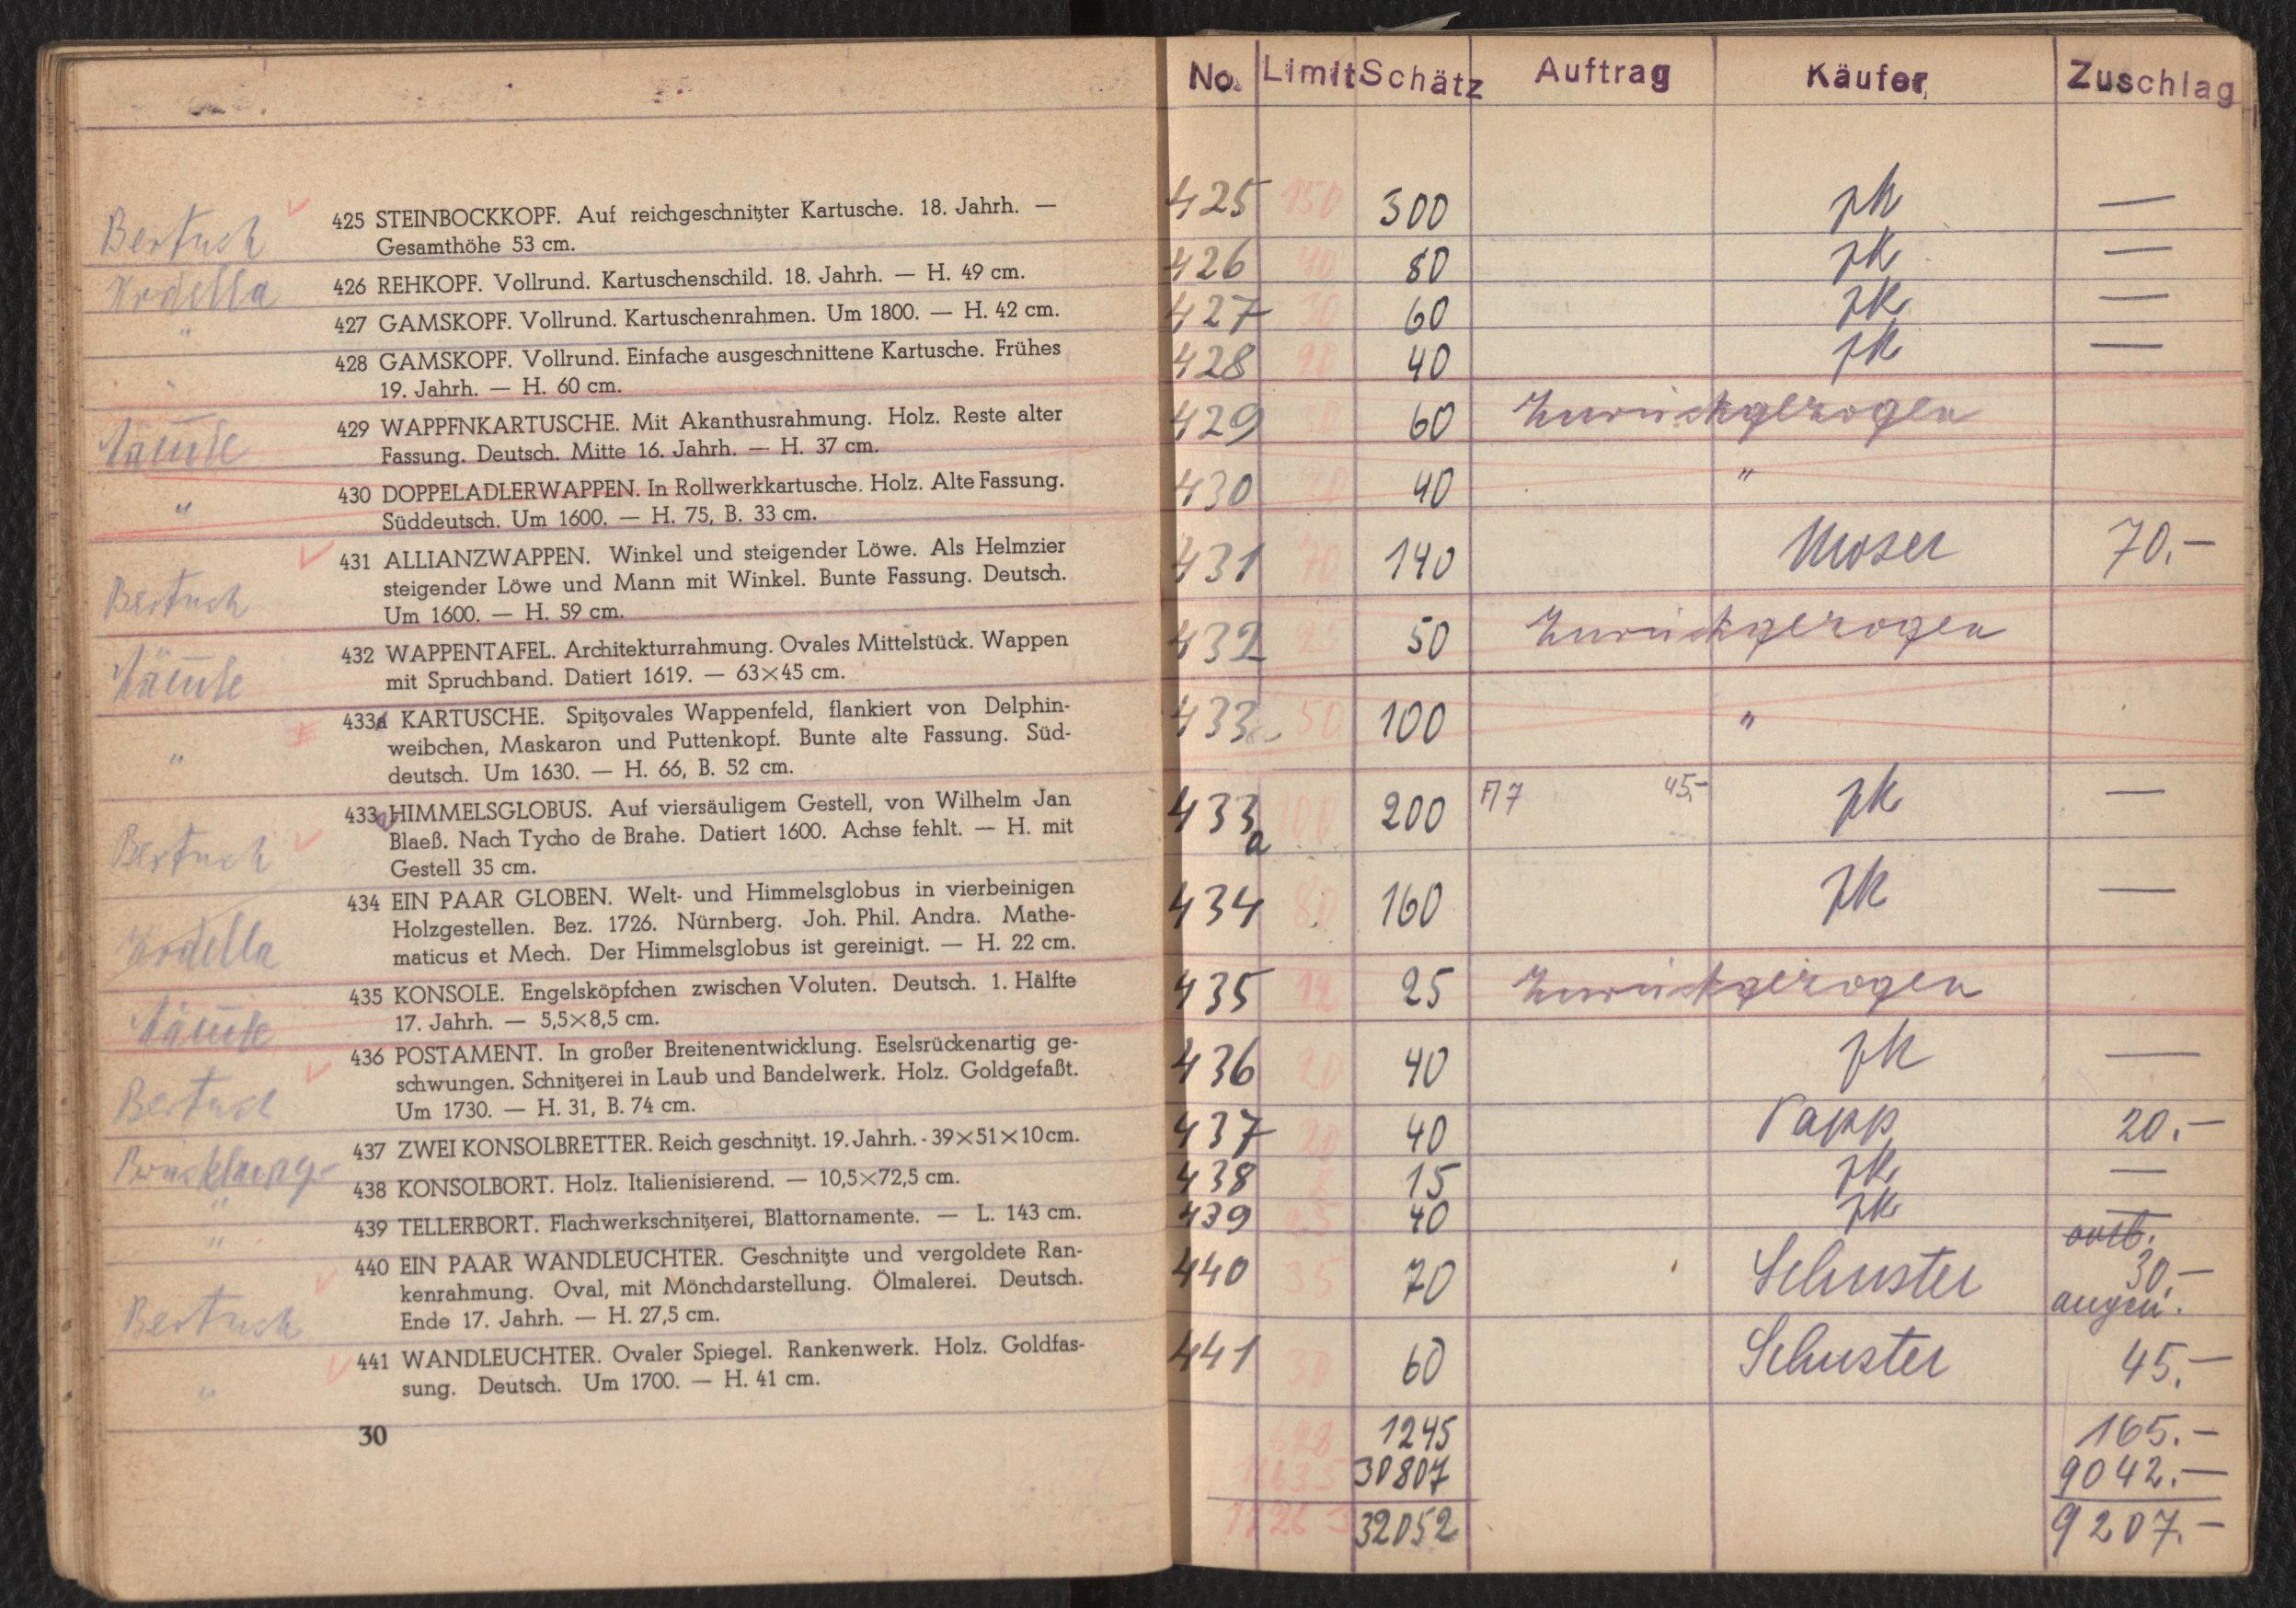 Bertuch
425 STEINBOCKKOPF. Auf reichgeschnitzter Kartusche. 18. Jahrh. —
Gesamthöhe 53 cm.
426 REHKOPF. Vollrund. Kartuschenschild. 18. Jahrh. — H. 49 cm.
"
427 GAMSKOPF. Vollrund. Kartuschenrahmen. Um 1800. — H. 42 cm.
"
428 GAMSKOPF. Vollrund. Einfache ausgeschnittene Kartusche. Frühes
19. Jahrh. — H. 60 cm.
429 WAPPFNKARTUSCHE. Mit Akanthusrahmung. Holz. Reste alter
Fassung. Deutsch. Mitte 16. Jahrh. — H. 37 cm.
"
430 DOPPELADLERWAPPEN. In Rollwerkkartusche. Holz. Alte Fassung.
Süddeutsch. Um 1600. — H. 75, B. 33 cm.
Bertuch
431 ALLIANZWAPPEN. Winkel und steigender Löwe. Als Helmzier
steigender Löwe und Mann mit Winkel. Bunte Fassung. Deutsch.
Um 1600. — H. 59 cm.
432 WAPPENTAFEL. Architekturrahmung. Ovales Mittelstück. Wappen
mit Spruchband. Datiert 1619. — 63×45 cm.
"
433a KARTUSCHE. Spitzovales Wappenfeld, flankiert von Delphin-
weibchen, Maskaron und Puttenkopf. Bunte alte Fassung. Süd-
deutsch. Um 1630. — H. 66, B. 52 cm.
Bertuch
433a HIMMELSGLOBUS. Auf viersäuligem Gestell, von Wilhelm Jan
Blaeß. Nach Tycho de Brahe. Datiert 1600. Achse fehlt. — H. mit
Gestell 35 cm.
434 EIN PAAR GLOBEN. Welt- und Himmelsglobus in vierbeinigen
Holzgestellen. Bez. 1726. Nürnberg. Joh. Phil. Andra. Mathe-
maticus et Mech. Der Himmelsglobus ist gereinigt. — H. 22 cm.
435 KONSOLE. Engelsköpfchen zwischen Voluten. Deutsch. 1. Hälfte
17. Jahrh. — 5,5×8,5 cm.
Bertuch
436 POSTAMENT. In großer Breitenentwicklung. Eselsrückenartig ge-
schwungen. Schnitzerei in Laub und Bandelwerk. Holz. Goldgefaßt.
Um 1730. — H. 31, B. 74 cm.
437 ZWEI KONSOLBRETTER. Reich geschnitzt. 19. Jahrh. - 39×51×10cm.
"
438 KONSOLBORT. Holz. Italienisierend. — 10,5×72,5 cm.
"
439 TELLERBORT. Flachwerkschnitzerei, Blattornamente. — L. 143 cm.
Bertuch
440 EIN PAAR WANDLEUCHTER. Geschnitzte und vergoldete Ran-
kenrahmung. Oval, mit Mönchdarstellung. Ölmalerei. Deutsch.
Ende 17. Jahrh. — H. 27,5 cm.
"
441 WANDLEUCHTER. Ovaler Spiegel. Rankenwerk. Holz. Goldfas-
sung. Deutsch. Um 1700. — H. 41 cm.
30
No. Limit Schätz Auftrag Käufer Zuschlag
425 150 300 zk —
426 40 80 zk —
427 30 60 zk —
428 20 40 zk —
429 60 Zurückgezogen
430 20 40 "
431 70 140 Moser 70.—
432 25 50 Zurückgezogen
433a 50 100 "
433a 100 200 45,- zk —
434 80 160 zk —
435 12 25 Zurückgezogen
436 20 40 zk —
437 20 40 Papp 20.—
438 15 zk —
439 25 40 zk —
440 35 70 Schuster 30,—
441 30 60 Schuster 45.—
1245 165.—
30807 9042.—
32052 9207.—